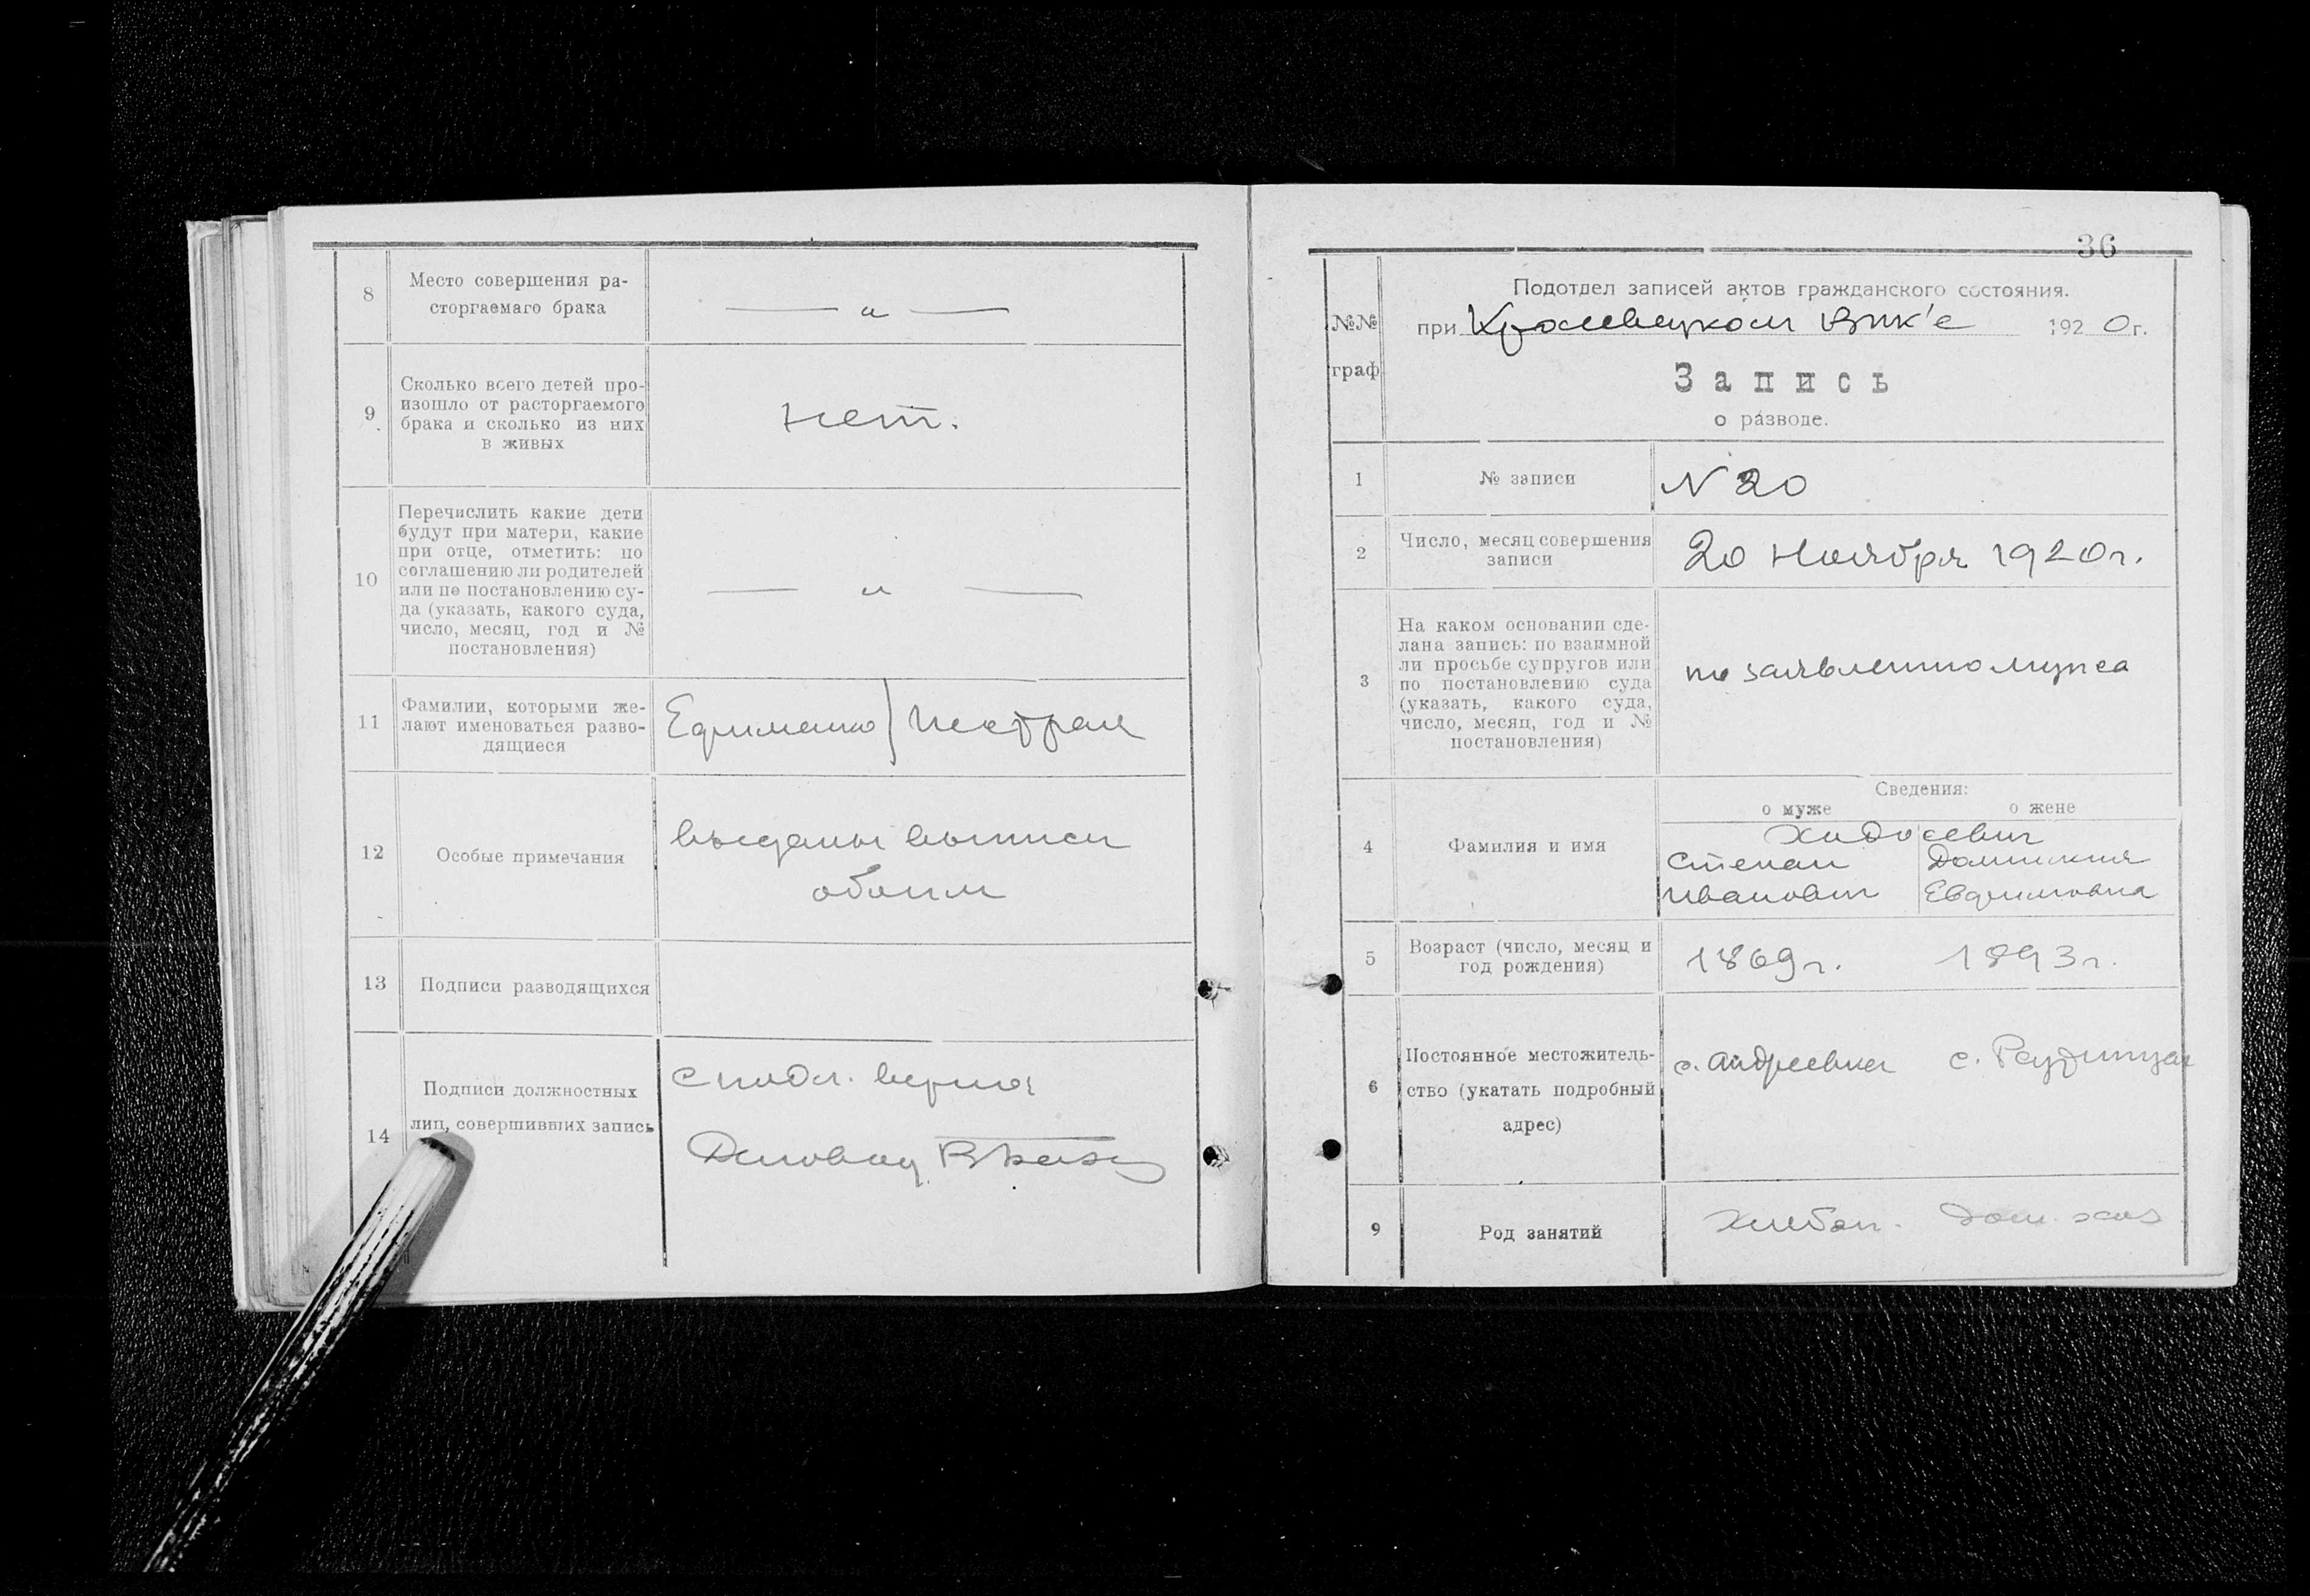 8
Место совершения ра-
сторгаемаго брака
— „ —
9
Сколько всего детей про-
изошло от расторгаемого
брака и сколько из них
в живых
нет.
10
Перечислить какие дети
будут при матери, какие
при отце, отметить: по
соглашению ли родителей
или по постановлению су-
да (указать, какого суда,
число, месяц, год и №
постановления)
— „ —
11
Фамилии, которыми же-
лают именоваться разво-
дящиеся
Ефименко
12
Особые примечания
выданы выписи
обоим
13
Подписи разводящихся
14
Подписи должностных
лиц, совершивших запись
с подл. верно
36
№№
граф
Подотдел записей актов гражданского состояния.
при Кролевецком Вик'е 1920г.
Запись
о разводе.
1
№ записи
N 20
2
Число, месяц совершения
записи
20 Ноября 1920г.
3
На каком основании сде-
лана запись: по взаимной
ли просьбе супругов или
по постановлению суда
(указать, какого суда,
число, месяц, год и №
постановления)
по заявлению мужа
Сведения:
о муже о жене
4
Фамилия и имя
Ходосевич
Степан
Иванович
Домникия
Евфимовна
5
Возраст (число, месяц и
год рождения)
1869г. 1893г.
6
Постоянное местожитель-
ство (укатать подробный
адрес)
с. Андреевка с.
9
Род занятий
Хлебоп. Дом. хоз.